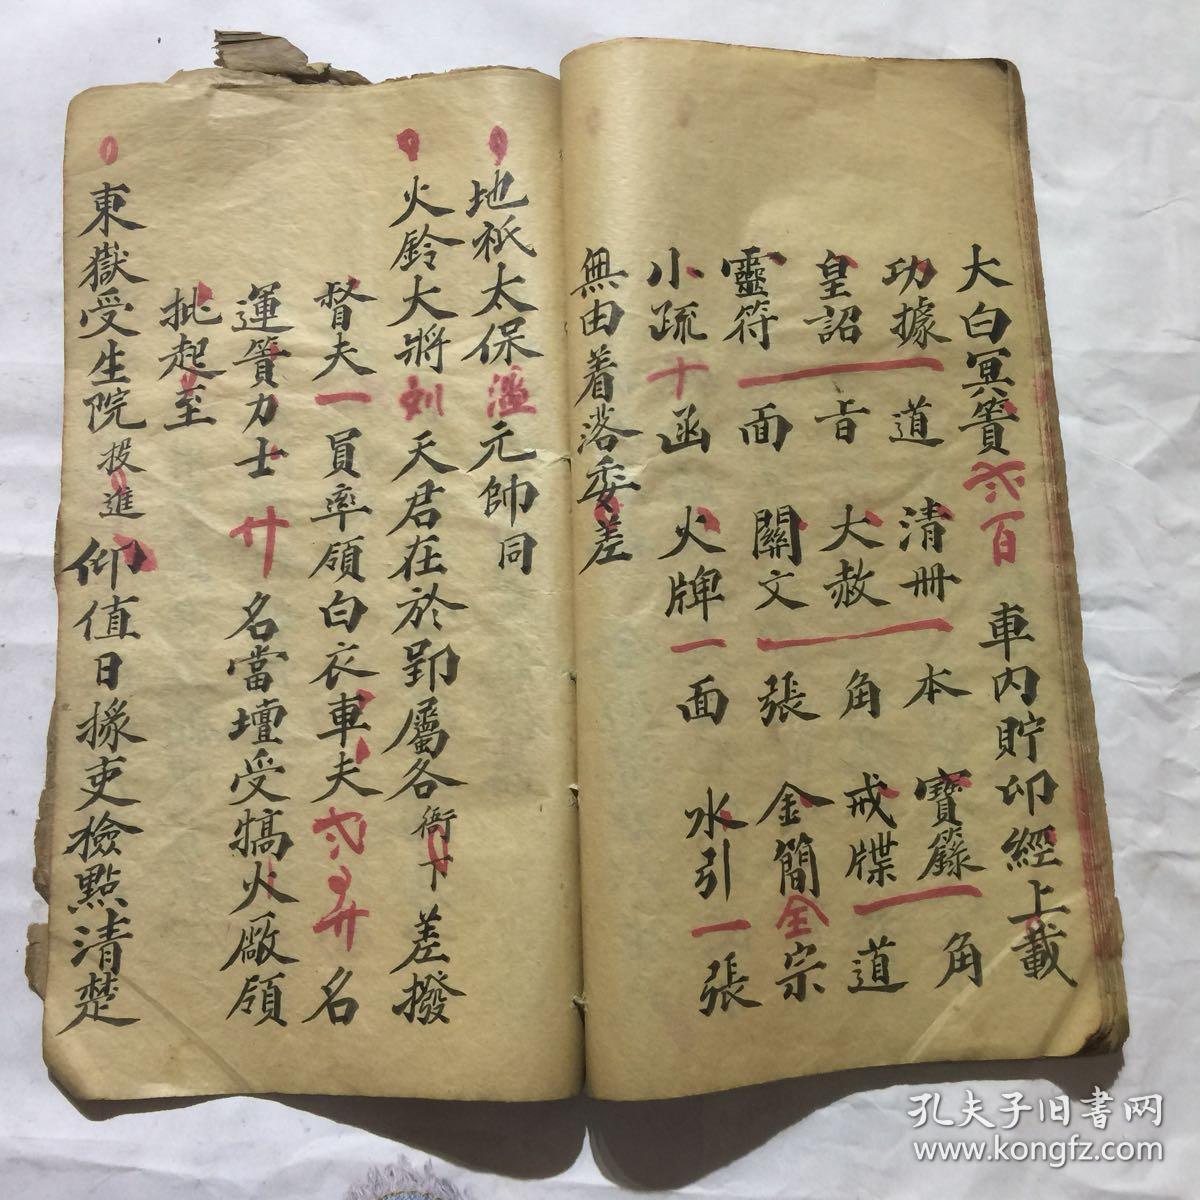 大白冥簀弍百 車内貯印經上載
功據一道 清册一本 寶籙一角
皇詔一旨 大赦一角 戒牒一道
靈符一面 關文一張 金簡全宗
小疏十函 火牌一面 水引一張
無由着落委差
地祇太保溫元帥同
火鈴大將刘天君在於郢屬各衙下差撥
督夫一員率領白衣車夫弍百廿名
運簀力士廿名當壇受犒火厰領
批起至
東嶽受生院投進仰值日掾吏檢點清楚
孔夫子旧書网
www.kongfz.com